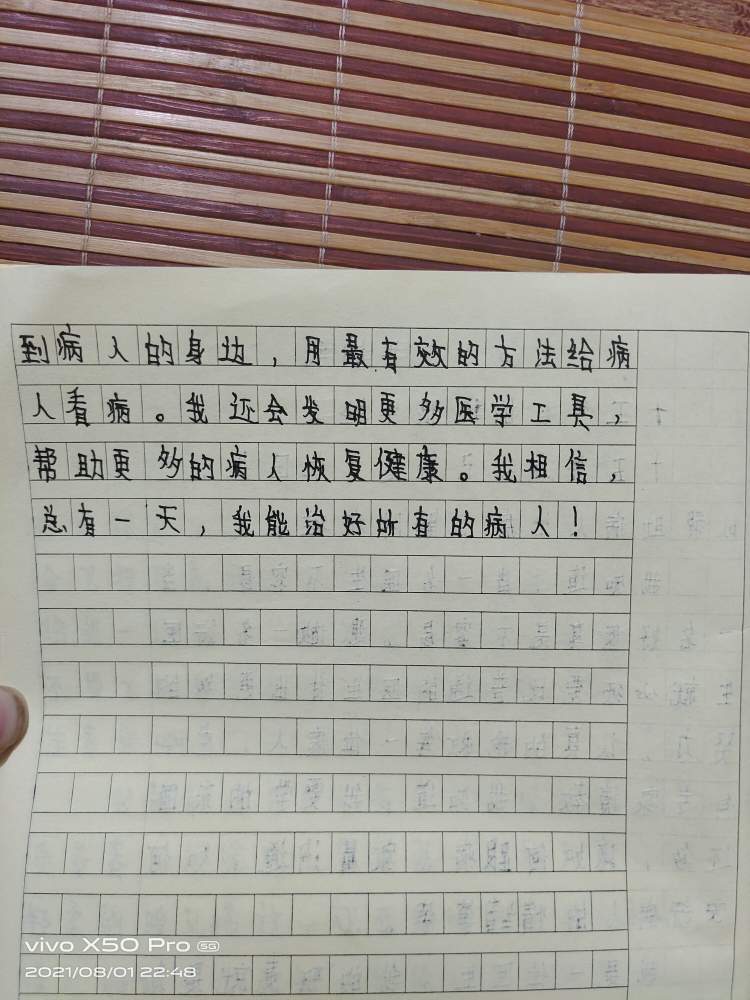 到病人的身边，用最有效的方法给病
人看病。我还会发明更多医学工具，
帮助更多的病人恢复健康。我相信，
总有一天，我能治好所有的病人！
vivo X50 Pro 5G
2021/08/01 22:48